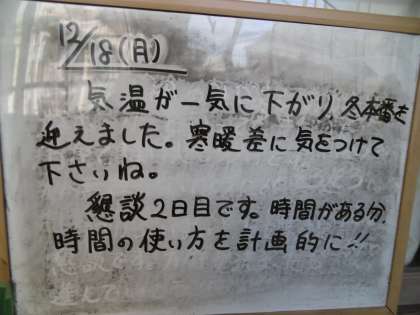 12/18(月)
気温が一気に下がり、冬本番を
迎えました。寒暖差に気をつけて
下さいね。
懇談2日目です。時間がある分、
時間の使い方を計画的に!!